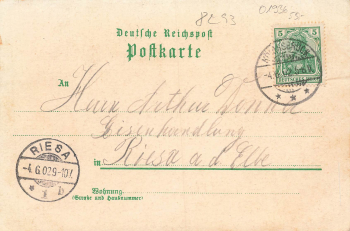 8293
01936
55,-
Deutsche Reichspost
Postkarte
5 5
An
Herrn Arthur
Eisenhandlung
in Riesa a d Elbe
RIESA
4.6.02.9-10V.
b
Wohnung
(Straße und Hausnummer)